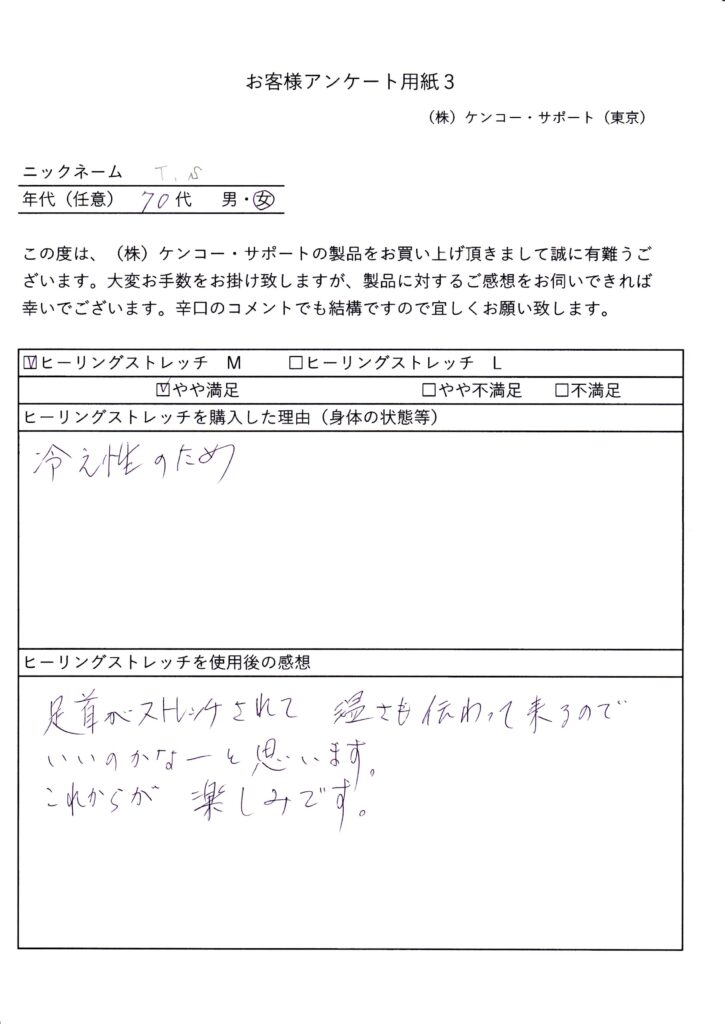 お客様アンケート用紙3
(株)ケンコー・サポート(東京)
ニックネーム T.S
年代(任意) 70代 男・女
この度は、(株)ケンコー・サポートの製品をお買い上げ頂きまして誠に有難うご
ざいます。大変お手数をお掛け致しますが、製品に対するご感想をお伺いできれば
幸いでございます。辛口のコメントでも結構ですので宜しくお願い致します。
☑ヒーリングストレッチ M □ヒーリングストレッチ L
☑やや満足 □やや不満足 □不満足
ヒーリングストレッチを購入した理由(身体の状態等)
冷え性のため
ヒーリングストレッチを使用後の感想
足首がストレッチされて 温さも伝わって来るので
いいのかなーと思います。
これからが 楽しみです。